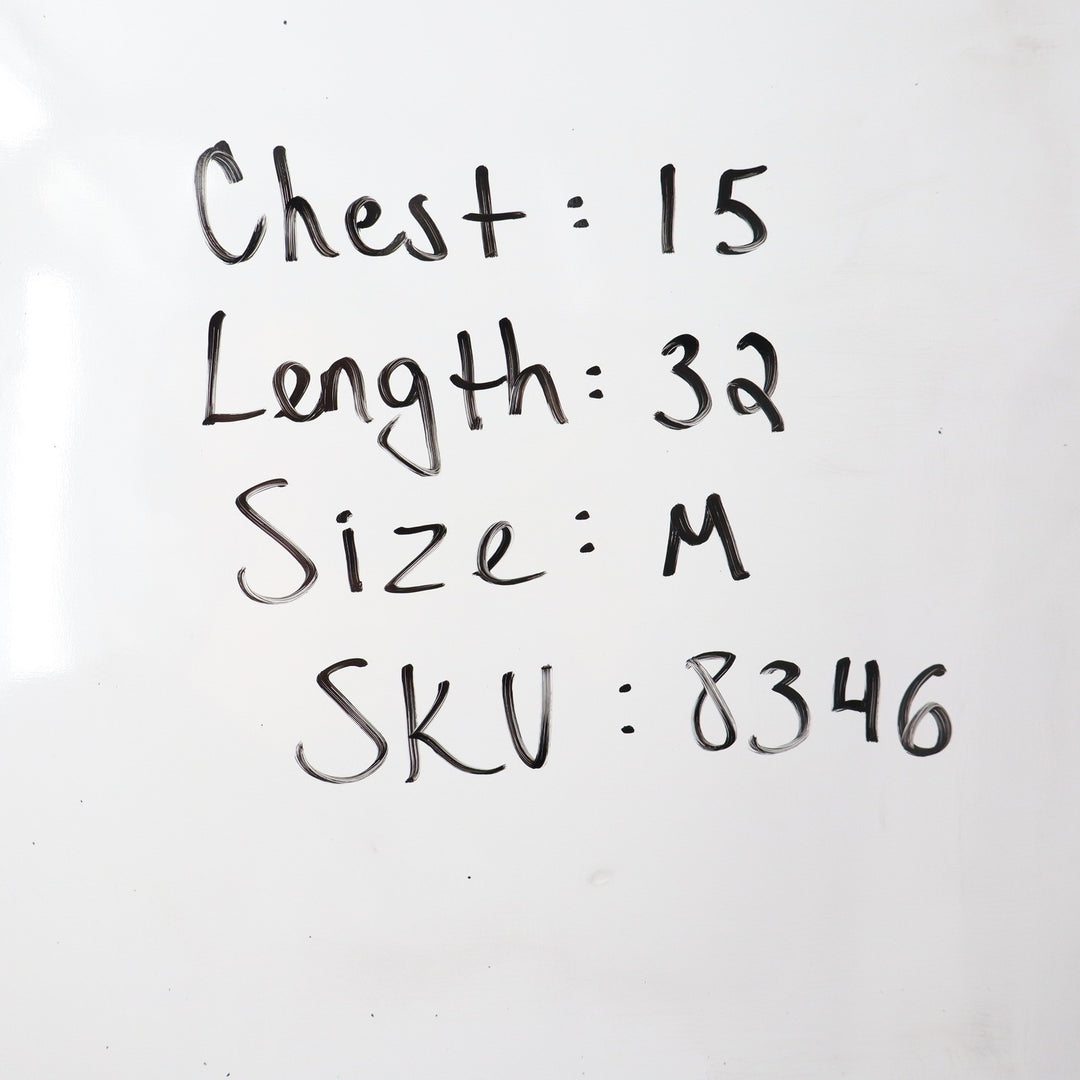 Chest: 15
Length: 32
Size: M
SKU: 8346